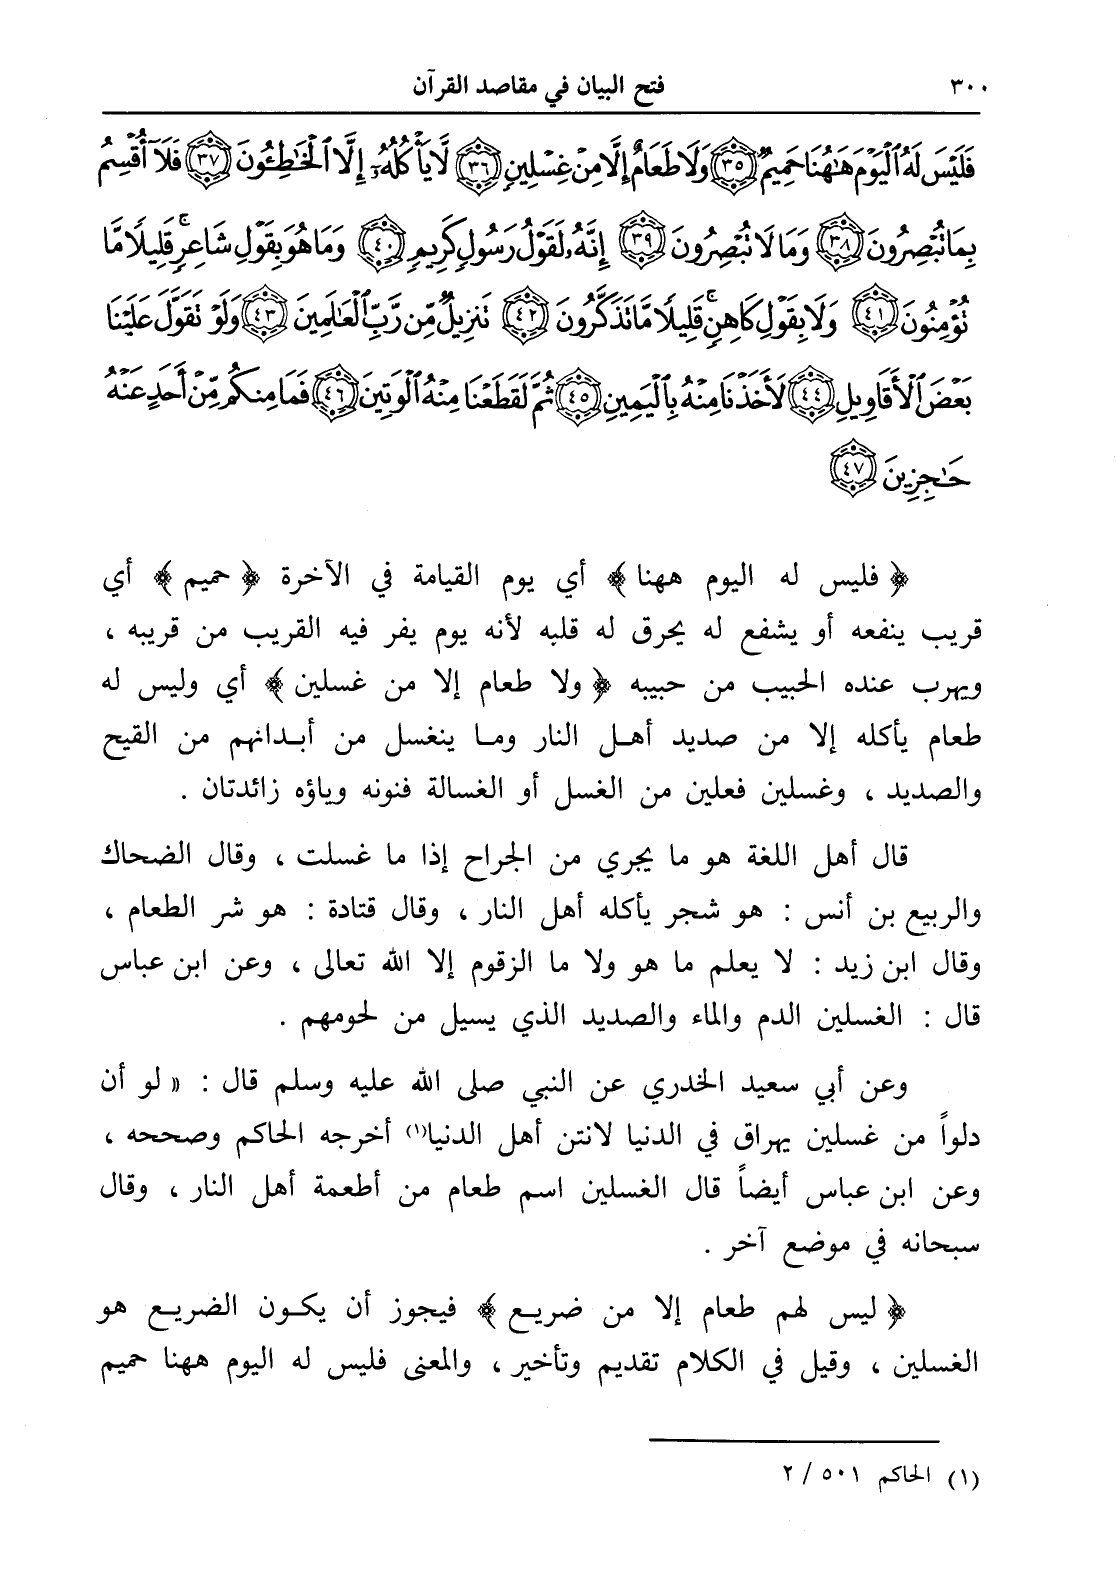 ٣٠٠ فتح البيان في مقاصد القرآن
فَلَيْسَ لَهُ ٱلْيَوْمَ هَٰهُنَا حَمِيمٌ ٣٥ وَلَا طَعَامٌ إِلَّا مِنْ غِسْلِينٍ ٣٦ لَّا يَأْكُلُهُۥٓ إِلَّا ٱلْخَٰطِـُٔونَ ٣٧ فَلَآ أُقْسِمُ
بِمَا تُبْصِرُونَ ٣٨ وَمَا لَا تُبْصِرُونَ ٣٩ إِنَّهُۥ لَقَوْلُ رَسُولٍ كَرِيمٍ ٤٠ وَمَا هُوَ بِقَوْلِ شَاعِرٍ ۚ قَلِيلًا مَّا
تُؤْمِنُونَ ٤١ وَلَا بِقَوْلِ كَاهِنٍ ۚ قَلِيلًا مَّا تَذَكَّرُونَ ٤٢ تَنزِيلٌ مِّن رَّبِّ ٱلْعَٰلَمِينَ ٤٣ وَلَوْ تَقَوَّلَ عَلَيْنَا
بَعْضَ ٱلْأَقَاوِيلِ ٤٤ لَأَخَذْنَا مِنْهُ بِٱلْيَمِينِ ٤٥ ثُمَّ لَقَطَعْنَا مِنْهُ ٱلْوَتِينَ ٤٦ فَمَا مِنكُم مِّنْ أَحَدٍ عَنْهُ
حَٰجِزِينَ ٤٧
﴿ فليس له اليوم ههنا ﴾ أي يوم القيامة في الآخرة ﴿ حميم ﴾ أي
قريب ينفعه أو يشفع له يحرق له قلبه لأنه يوم يفر فيه القريب من قريبه ،
ويهرب عنده الحبيب من حبيبه ﴿ ولا طعام إلا من غسلين ﴾ أي وليس له
طعام يأكله إلا من صديد أهل النار وما ينغسل من أبدانهم من القيح
والصديد ، وغسلين فعلين من الغسل أو الغسالة فنونه وياؤه زائدتان .
قال أهل اللغة هو ما يجري من الجراح إذا ما غسلت ، وقال الضحاك
والربيع بن أنس : هو شجر يأكله أهل النار ، وقال قتادة : هو شر الطعام ،
وقال ابن زيد : لا يعلم ما هو ولا ما الزقوم إلا الله تعالى ، وعن ابن عباس
قال : الغسلين الدم والماء والصديد الذي يسيل من لحومهم .
وعن أبي سعيد الخدري عن النبي صلى الله عليه وسلم قال : « لو أن
دلواً من غسلين يهراق في الدنيا لانتن أهل الدنيا(١) أخرجه الحاكم وصححه ،
وعن ابن عباس أيضاً قال الغسلين اسم طعام من أطعمة أهل النار ، وقال
سبحانه في موضع آخر .
﴿ ليس لهم طعام إلا من ضريع ﴾ فيجوز أن يكون الضريع هو
الغسلين ، وقيل في الكلام تقديم وتأخير ، والمعنى فليس له اليوم ههنا حميم
(١) الحاكم ٥٠١ / ٢